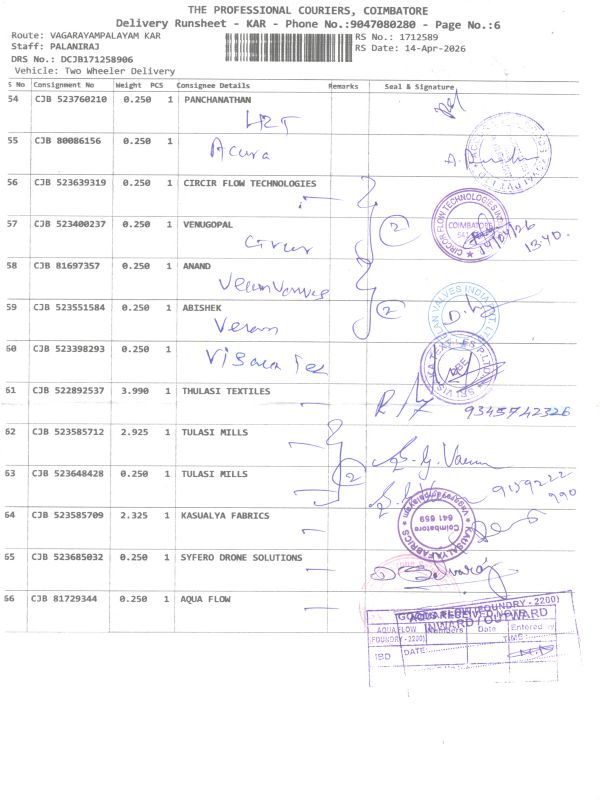 THE PROFESSIONAL COURIERS, COIMBATORE
Delivery Runsheet - KAR - Phone No.:9047080280 - Page No.:6
Route: VAGARAYAMPALAYAM KAR
RS No.: 1712589
Staff: PALANIRAJ
RS Date: 14-Apr-2026
DRS No.: DCJB171258906
Vehicle: Two Wheeler Delivery
S No Consignment No Weight PCS Consignee Details Remarks Seal & Signature
54 CJB 523760210 0.250 1 PANCHANATHAN
LRT
55 CJB 80086156 0.250 1
Acura
56 CJB 523639319 0.250 1 CIRCIR FLOW TECHNOLOGIES
CIRCOR FLOW TECHNOLOGIES
COIMBATORE
57 CJB 523400237 0.250 1 VENUGOPAL
Circur
2
14/04/26
13:40.
58 CJB 81697357 0.250 1 ANAND
59 CJB 523551584 0.250 1 ABISHEK
2
VALVES INDIA
60 CJB 523398293 0.250 1
61 CJB 522892537 3.990 1 THULASI TEXTILES
9345742326
62 CJB 523585712 2.925 1 TULASI MILLS
63 CJB 523648428 0.250 1 TULASI MILLS
2
9159222
990
64 CJB 523585709 2.325 1 KASUALYA FABRICS
KAUSALYA FABRICS
Coimbatore
641 659
65 CJB 523685032 0.250 1 SYFERO DRONE SOLUTIONS
66 CJB 81729344 0.250 1 AQUA FLOW
INWARD / OUTWARD
AQUA FLOW
Date
Entered by
FOUNDRY - 2200)
TIME:
IBD
DATE: